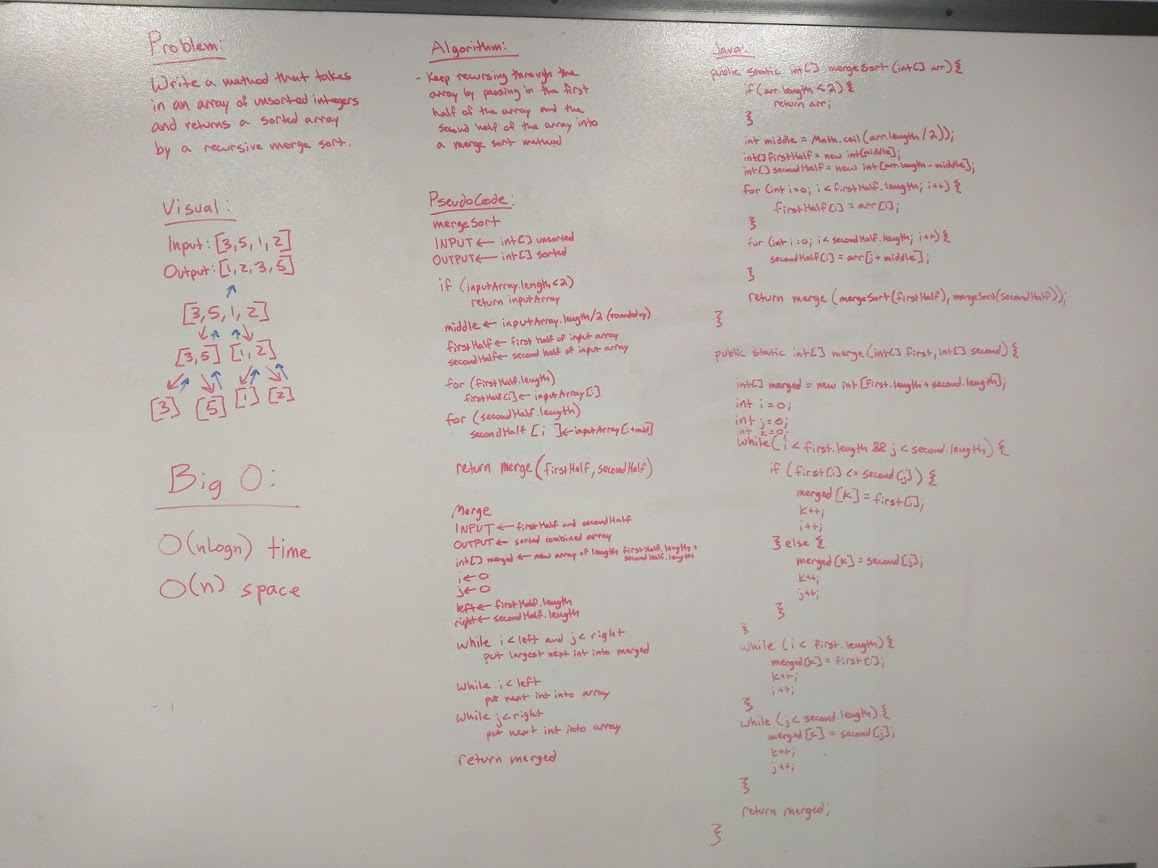 Problem:
Write a method that takes
in an array of unsorted integers
and returns a sorted array
by a recursive merge sort.
Visual:
Input: [3,5,1,2]
Output: [1,2,3,5]
[3,5,1,2]
[3,5] [1,2]
[3] [5] [1] [2]
Big O:
O(nLogn) time
O(n) space
Algorithm:
- Keep recursing through the
array by passing in the first
half of the array and the
second half of the array into
a merge sort method
PseudoCode:
mergeSort
INPUT ← int[] unsorted
OUTPUT ← int[] sorted
if (inputArray.length<2)
return inputArray
middle ← inputArray.length/2 (rounded up)
firstHalf ← first half of input array
secondHalf ← second half of input array
for (firstHalf.length)
firstHalf[i] ← inputArray[i]
for (secondHalf.length)
secondHalf [i] ← inputArray[i+mid]
return merge(firstHalf, secondHalf)
Merge
INPUT ← firstHalf and secondHalf
OUTPUT ← sorted combined array
int[] merged ← new array of length firstHalf.length +
secondHalf.length
i ← 0
j ← 0
left ← firstHalf.length
right ← secondHalf.length
while i < left and j < right
put largest next int into merged
while i < left
put next int into array
while j < right
put next int into array
return merged
Java:
public static int[] mergeSort (int[] arr) {
if (arr.length < 2) {
return arr;
}
int middle = Math.ceil (arr.length / 2));
int[] firstHalf = new int[middle];
int[] secondHalf = new int[arr.length - middle];
for (int i=0; i < firstHalf.length; i++) {
firstHalf[i] = arr[i];
}
for (int i=0; i < secondHalf.length; i++) {
secondHalf[i] = arr[i + middle];
}
return merge (mergeSort(firstHalf), mergeSort(secondHalf));
}
public static int[] merge (int[] first, int[] second) {
int[] merged = new int [first.length + second.length];
int i = 0;
int j = 0;
int k = 0;
while (i < first.length && j < second.length) {
if (first[i] <= second[j]) {
merged [k] = first[i];
k++;
i++;
} else {
merged [k] = second[j];
k++;
j++;
}
}
while (i < first.length) {
merged[k] = first[i];
k++;
i++;
}
while (j < second.length) {
merged [k] = second[j];
k++;
j++;
}
return merged;
}